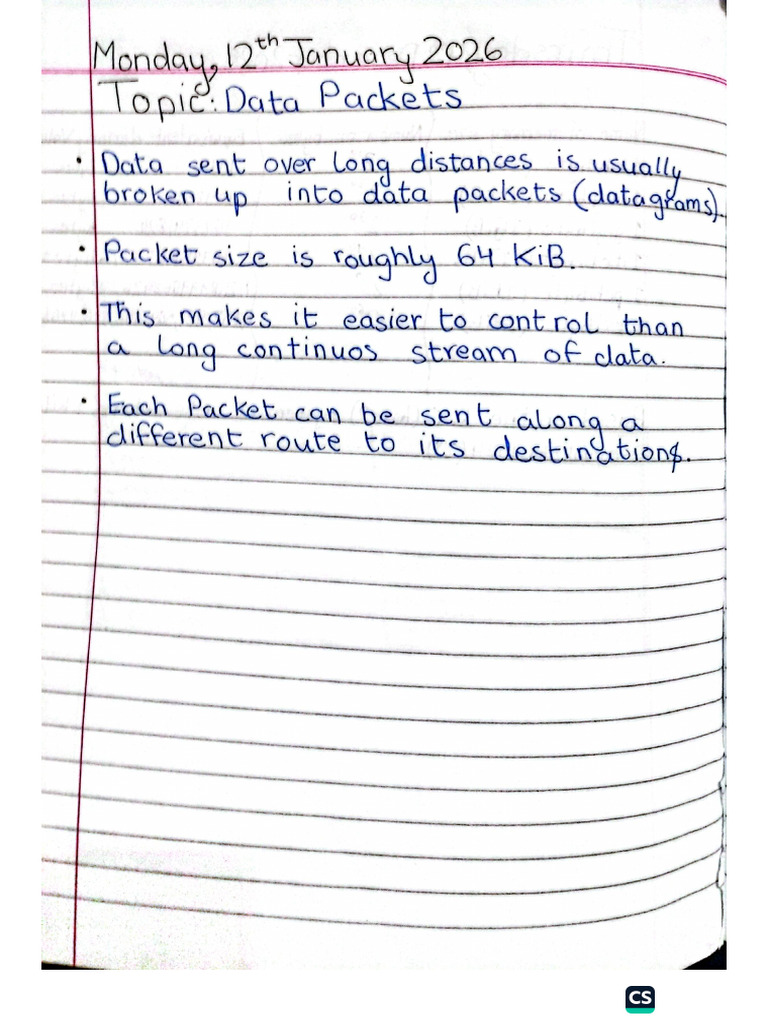 Monday, 12th January 2026
Topic: Data Packets
• Data sent over long distances is usually
broken up into data packets (datagrams).
• Packet size is roughly 64 KiB.
• This makes it easier to control than
a long continuos stream of data.
• Each Packet can be sent along a
different route to its destination.
CS